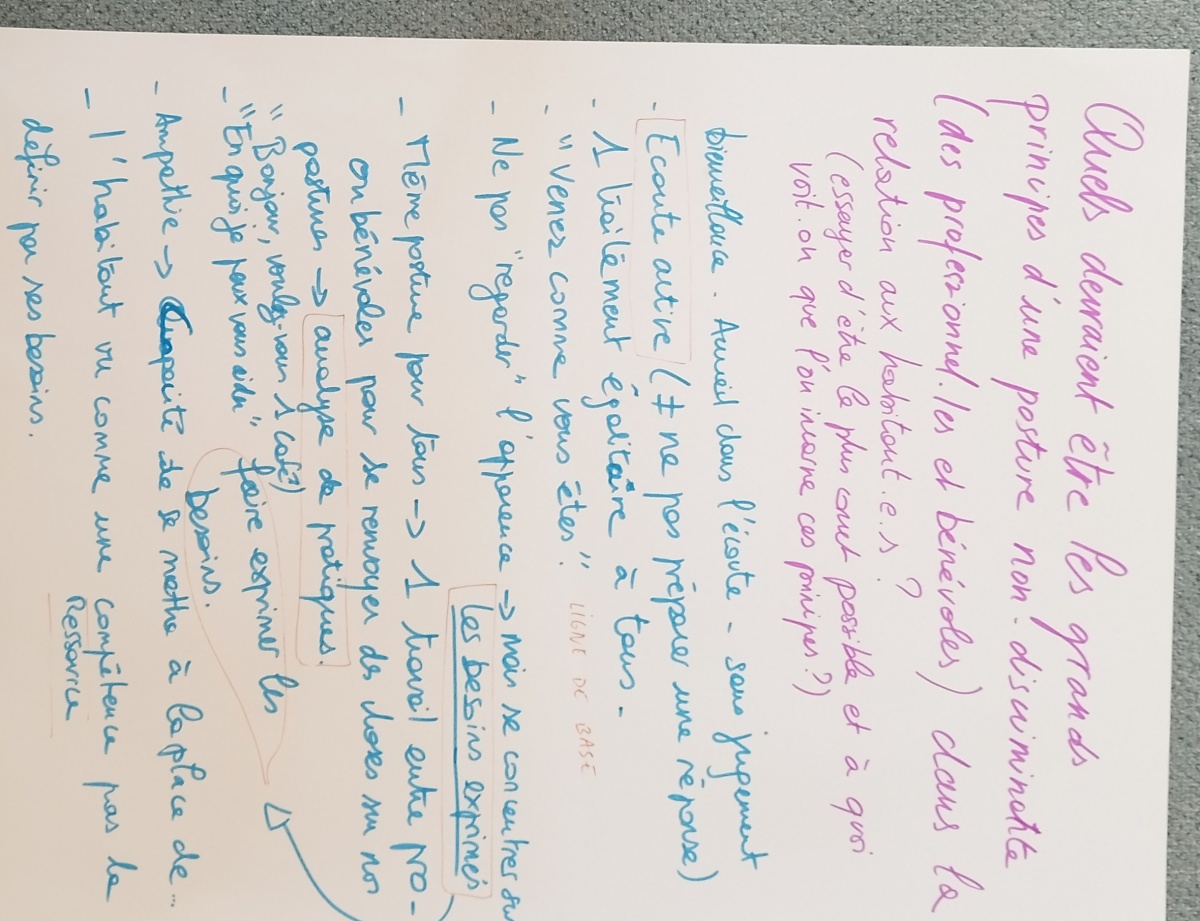 Quels devraient être les grands
principes d'une posture non-discriminante
(des professionnel.les et bénévoles) dans la
relation aux habitant.e.s ?
(essayer d'être le plus court possible et à quoi
voit-on que l'on incarne ces principes ?)
bienveillance. Accueil dans l'écoute - sans jugement
- Ecoute active (≠ ne pas préparer une réponse)
- 1 traitement égalitaire à tous -
- "Venez comme vous êtes". LIGNE DE BASE
- Ne pas "regarder" l'apparence → mais se concentrer sur
les besoins exprimés
- Même posture pour tous → 1 travail entre pro-
ou bénévoles pour se renvoyer des choses sur nos
postures → analyse de pratiques.
"Bonjour, voulez-vous 1 café)
- "En quoi je peux vous aider" faire exprimer les
besoins.
- Ampathie → Capacité de se mettre à la place de...
- l'habitant vu comme une compétence pas le
Ressource
définir par ses besoins.